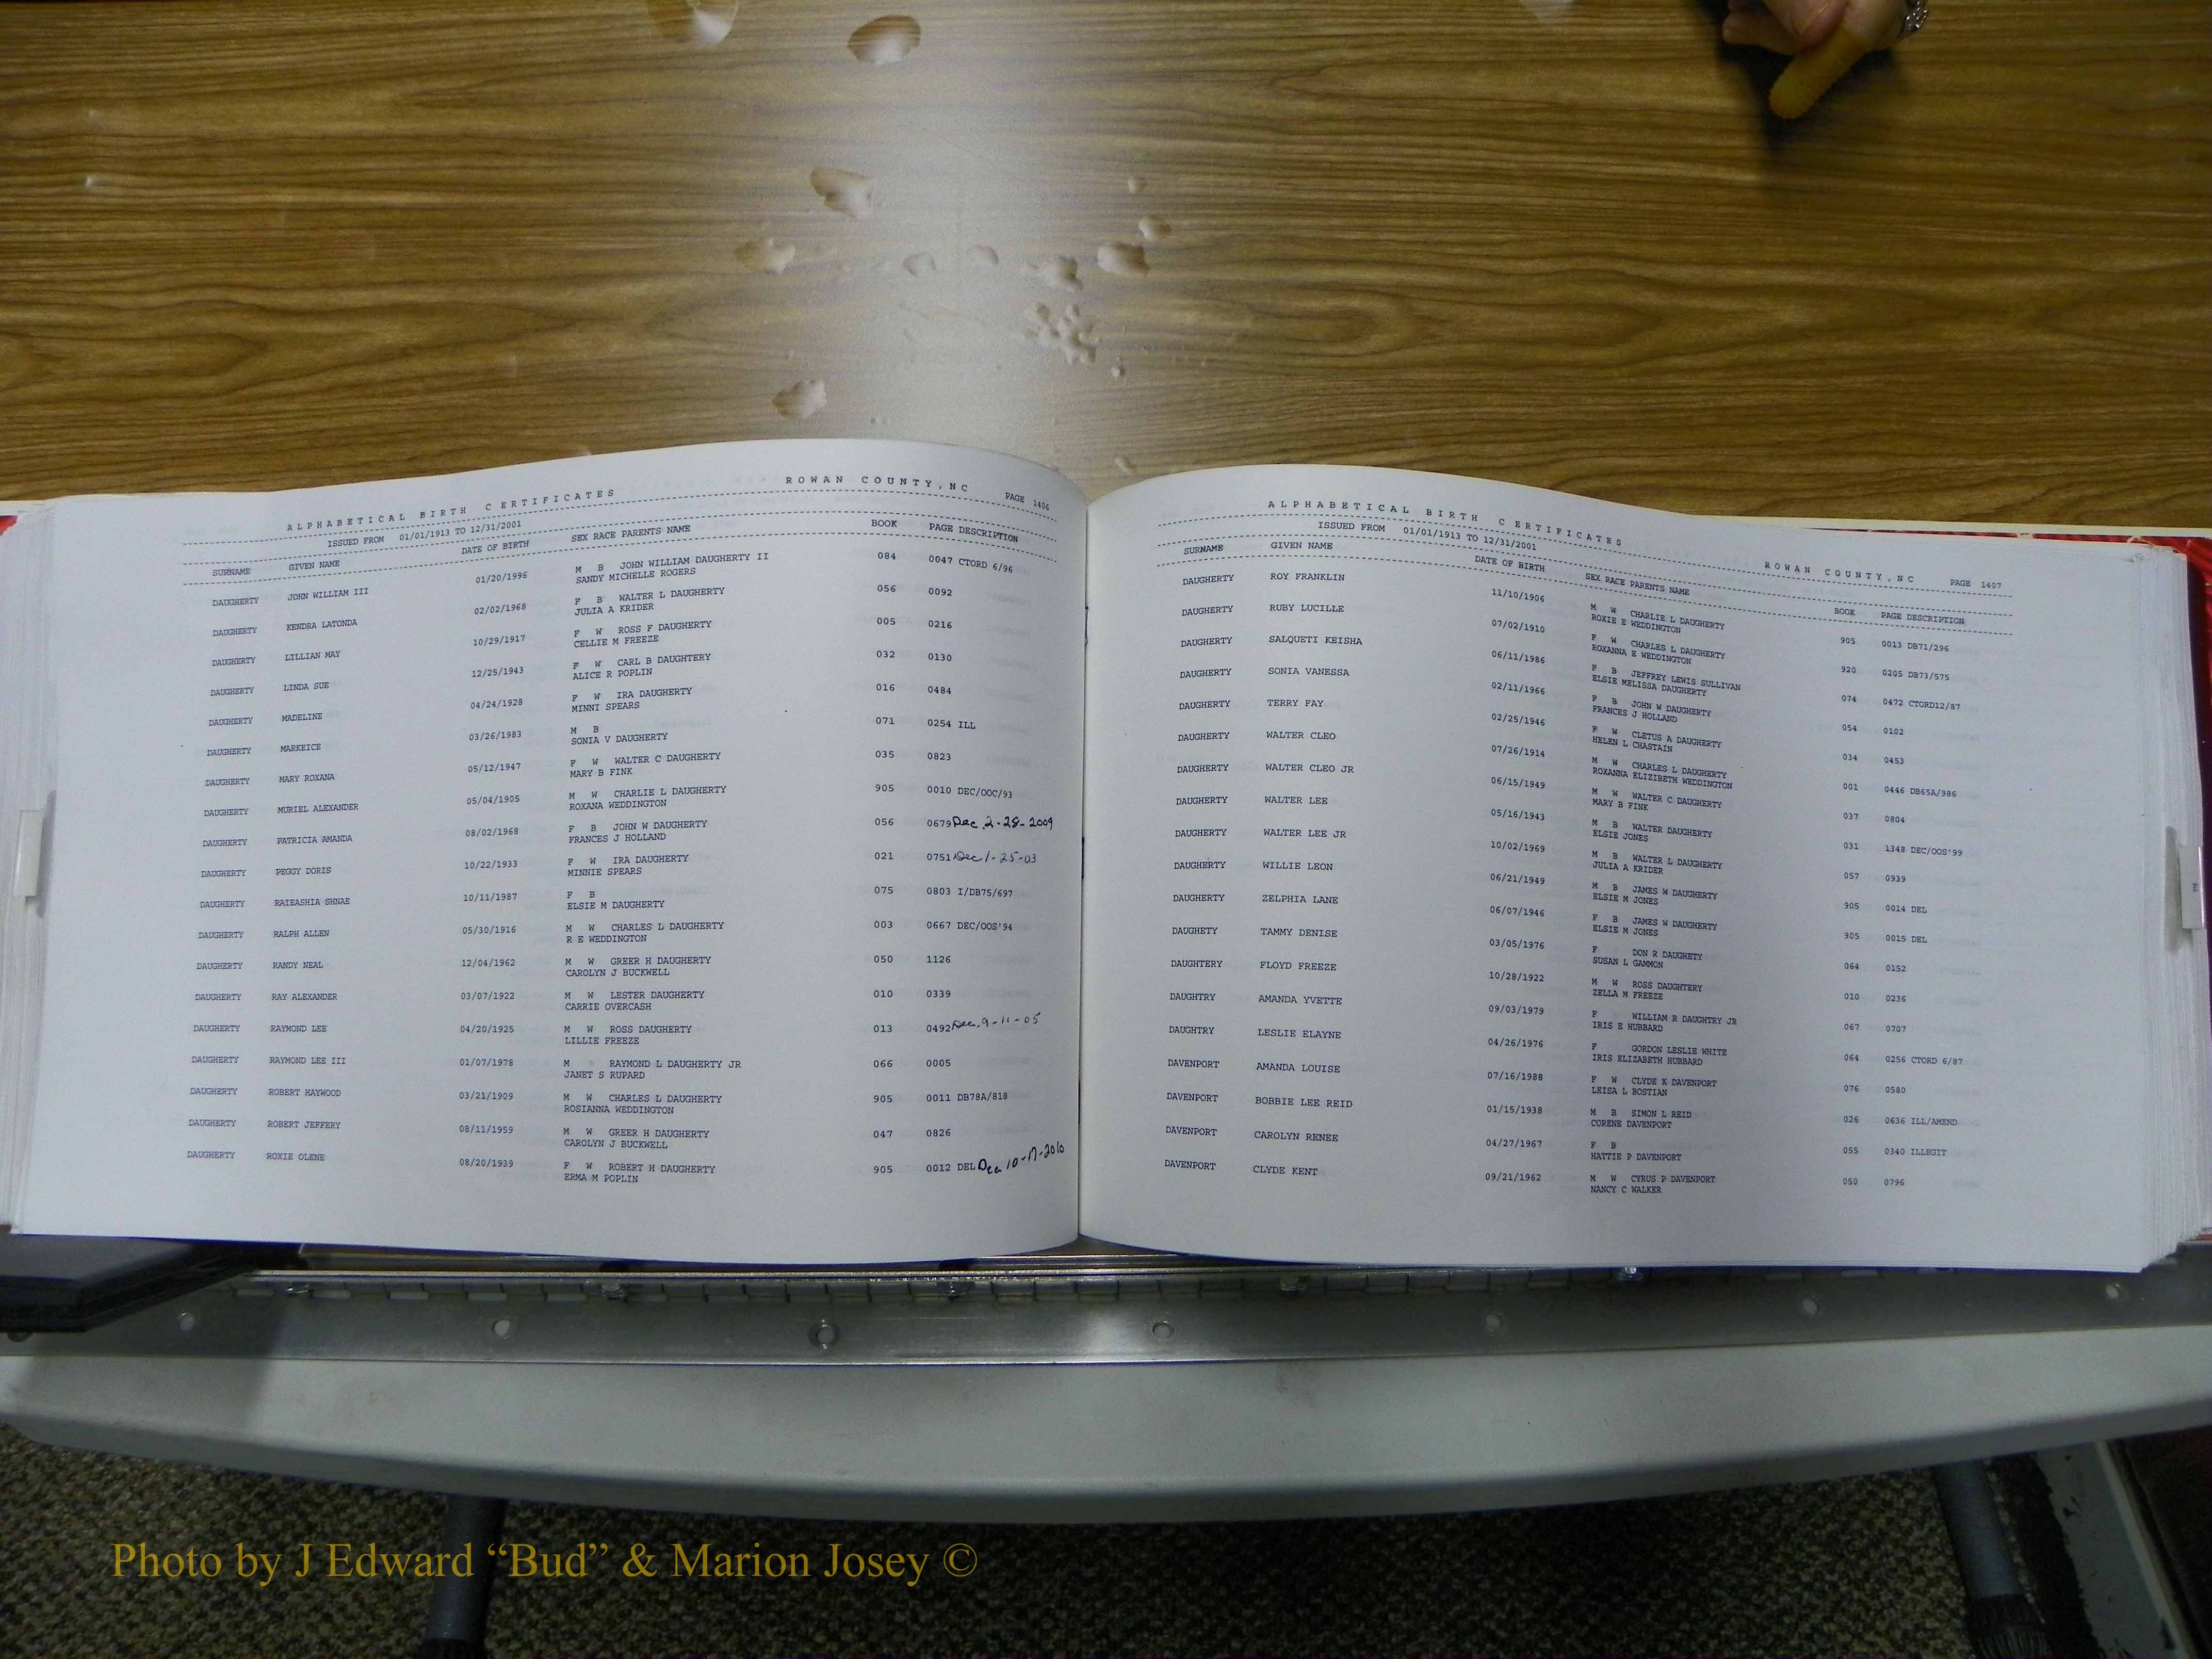 ALPHABETICAL BIRTH CERTIFICATES ROWAN COUNTY, NC PAGE 1406
ISSUED FROM 01/01/1913 TO 12/31/2001
SURNAME GIVEN NAME DATE OF BIRTH SEX RACE PARENTS NAME BOOK PAGE DESCRIPTION
DAUGHERTY JOHN WILLIAM III 01/20/1996 M B JOHN WILLIAM DAUGHERTY II 084 0047 CTORD 6/96
SANDY MICHELLE ROGERS
DAUGHERTY KENDRA LATONDA 02/02/1968 F B WALTER L DAUGHERTY 056 0092
JULIA A KRIDER
DAUGHERTY LILLIAN MAY 10/29/1917 F W ROSS F DAUGHERTY 005 0216
CELLIE M FREEZE
DAUGHERTY LINDA SUE 12/25/1943 F W CARL B DAUGHTERY 032 0130
ALICE R POPLIN
DAUGHERTY MADELINE 04/24/1928 F W IRA DAUGHERTY 016 0484
MINNI SPEARS
DAUGHERTY MARKEICE 03/26/1983 M B 071 0254 ILL
SONIA V DAUGHERTY
DAUGHERTY MARY ROXANA 05/12/1947 F W WALTER C DAUGHERTY 035 0823
MARY B FINK
DAUGHERTY MURIEL ALEXANDER 05/04/1905 M W CHARLIE L DAUGHERTY 905 0010 DEC/OOC/93
ROXANA WEDDINGTON
DAUGHERTY PATRICIA AMANDA 08/02/1968 F B JOHN W DAUGHERTY 056 0679 Dec. 2-28-2009
FRANCES J HOLLAND
DAUGHERTY PEGGY DORIS 10/22/1933 F W IRA DAUGHERTY 021 0751 Dec 1-25-03
MINNIE SPEARS
DAUGHERTY RAIEASHIA SHNAE 10/11/1987 F B 075 0803 I/DB75/697
ELSIE M DAUGHERTY
DAUGHERTY RALPH ALLEN 05/30/1916 M W CHARLES L DAUGHERTY 003 0667 DEC/OOS'94
R E WEDDINGTON
DAUGHERTY RANDY NEAL 12/04/1962 M W GREER H DAUGHERTY 050 1126
CAROLYN J BUCKWELL
DAUGHERTY RAY ALEXANDER 03/07/1922 M W LESTER DAUGHERTY 010 0339
CARRIE OVERCASH
DAUGHERTY RAYMOND LEE 04/20/1925 M W ROSS DAUGHERTY 013 0492 Dec. 9-11-05
LILLIE FREEZE
DAUGHERTY RAYMOND LEE III 01/07/1978 M RAYMOND L DAUGHERTY JR 066 0005
JANET S RUPARD
DAUGHERTY ROBERT HAYWOOD 03/21/1909 M W CHARLES L DAUGHERTY 905 0011 DB78A/818
ROSIANNA WEDDINGTON
DAUGHERTY ROBERT JEFFERY 08/11/1959 M W GREER H DAUGHERTY 047 0826
CAROLYN J BUCKWELL
DAUGHERTY ROXIE OLENE 08/20/1939 F W ROBERT H DAUGHERTY 905 0012 DEL Dec 10-17-2010
ERMA M POPLIN
ALPHABETICAL BIRTH CERTIFICATES ROWAN COUNTY, NC PAGE 1407
ISSUED FROM 01/01/1913 TO 12/31/2001
SURNAME GIVEN NAME DATE OF BIRTH SEX RACE PARENTS NAME BOOK PAGE DESCRIPTION
DAUGHERTY ROY FRANKLIN 11/10/1906 M W CHARLIE L DAUGHERTY 905 0013 DB71/296
ROXIE E WEDDINGTON
DAUGHERTY RUBY LUCILLE 07/02/1910 F W CHARLES L DAUGHERTY 920 0205 DB73/575
ROXANNA E WEDDINGTON
DAUGHERTY SALQUETI KEISHA 06/11/1986 F B JEFFREY LEWIS SULLIVAN 074 0472 CTORD12/87
ELSIE MELISSA DAUGHERTY
DAUGHERTY SONIA VANESSA 02/11/1966 F B JOHN W DAUGHERTY 054 0102
FRANCES J HOLLAND
DAUGHERTY TERRY FAY 02/25/1946 F W CLETUS A DAUGHERTY 034 0453
HELEN L CHASTAIN
DAUGHERTY WALTER CLEO 07/26/1914 M W CHARLES L DAUGHERTY 001 0446 DB65A/986
ROXANNA ELIZIBETH WEDDINGTON
DAUGHERTY WALTER CLEO JR 06/15/1949 M W WALTER C DAUGHERTY 037 0804
MARY B FINK
DAUGHERTY WALTER LEE 05/16/1943 M B WALTER DAUGHERTY 031 1348 DEC/OOS'99
ELSIE JONES
DAUGHERTY WALTER LEE JR 10/02/1969 M B WALTER L DAUGHERTY 057 0939
JULIA A KRIDER
DAUGHERTY WILLIE LEON 06/21/1949 M B JAMES W DAUGHERTY 905 0014 DEL
ELSIE M JONES
DAUGHERTY ZELPHIA LANE 06/07/1946 F B JAMES W DAUGHERTY 905 0015 DEL
ELSIE M JONES
DAUGHETY TAMMY DENISE 03/05/1976 F DON R DAUGHETY 064 0152
SUSAN L GAMMON
DAUGHTERY FLOYD FREEZE 10/28/1922 M W ROSS DAUGHTERY 010 0236
ZELLA M FREEZE
DAUGHTRY AMANDA YVETTE 09/03/1979 F WILLIAM R DAUGHTRY JR 067 0707
IRIS E HUBBARD
DAUGHTRY LESLIE ELAYNE 04/26/1976 F GORDON LESLIE WHITE 064 0256 CTORD 6/87
IRIS ELIZABETH HUBBARD
DAVENPORT AMANDA LOUISE 07/16/1988 F W CLYDE K DAVENPORT 076 0580
LEISA L BOSTIAN
DAVENPORT BOBBIE LEE REID 01/15/1938 M B SIMON L REID 026 0636 ILL/AMEND
CORENE DAVENPORT
DAVENPORT CAROLYN RENEE 04/27/1967 F B 055 0340 ILLEGIT
HATTIE P DAVENPORT
DAVENPORT CLYDE KENT 09/21/1962 M W CYRUS P DAVENPORT 050 0796
NANCY C WALKER
Photo by J Edward “Bud” & Marion Josey ©